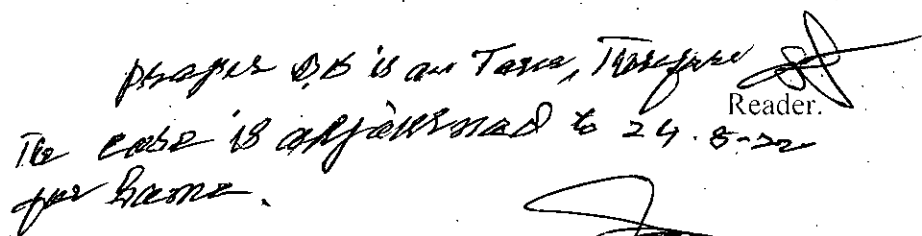 proper D.B is on Tour, Therefore
Reader.
The case is adjourned to 24-8-22
for Same.